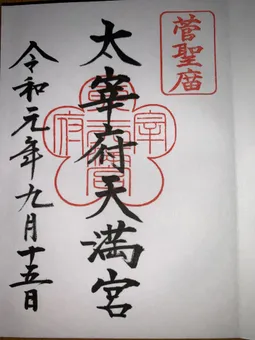 菅聖廟
太宰府天満宮
令和元年九月十五日